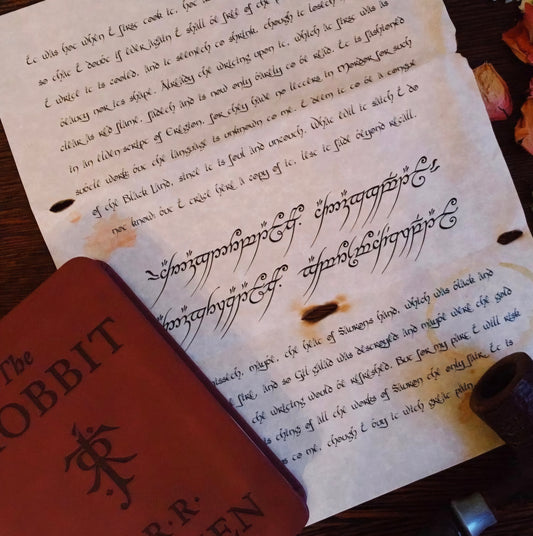 It was hot when I first took it, hot
so that I doubt if ever again I shall be free of the
I write it is cooled, and it seemeth to shrink, though it loseth
beauty nor its shape. Already the writing upon it, which at first was as
clear as red flame, fadeth and is now only barely to be read. It is fashioned
in an elven script of Eregion, for they have no letters in Mordor for such
subtle work; but the language is unknown to me. I deem it to be a tongue
of the Black Land, since it is foul and uncouth. What evil it saith I do
not know; but I trace here a copy of it, lest it fade beyond recall.
isseth, maybe, the heat of Sauron's hand, which was black and
fire, and so Gil-galad was destroyed; and maybe were the gold
the writing would be refreshed. But for my part I will risk
thing of all the works of Sauron the only fair. It is
to me, though I buy it with great pain
The
OBBIT
R.R.
EN